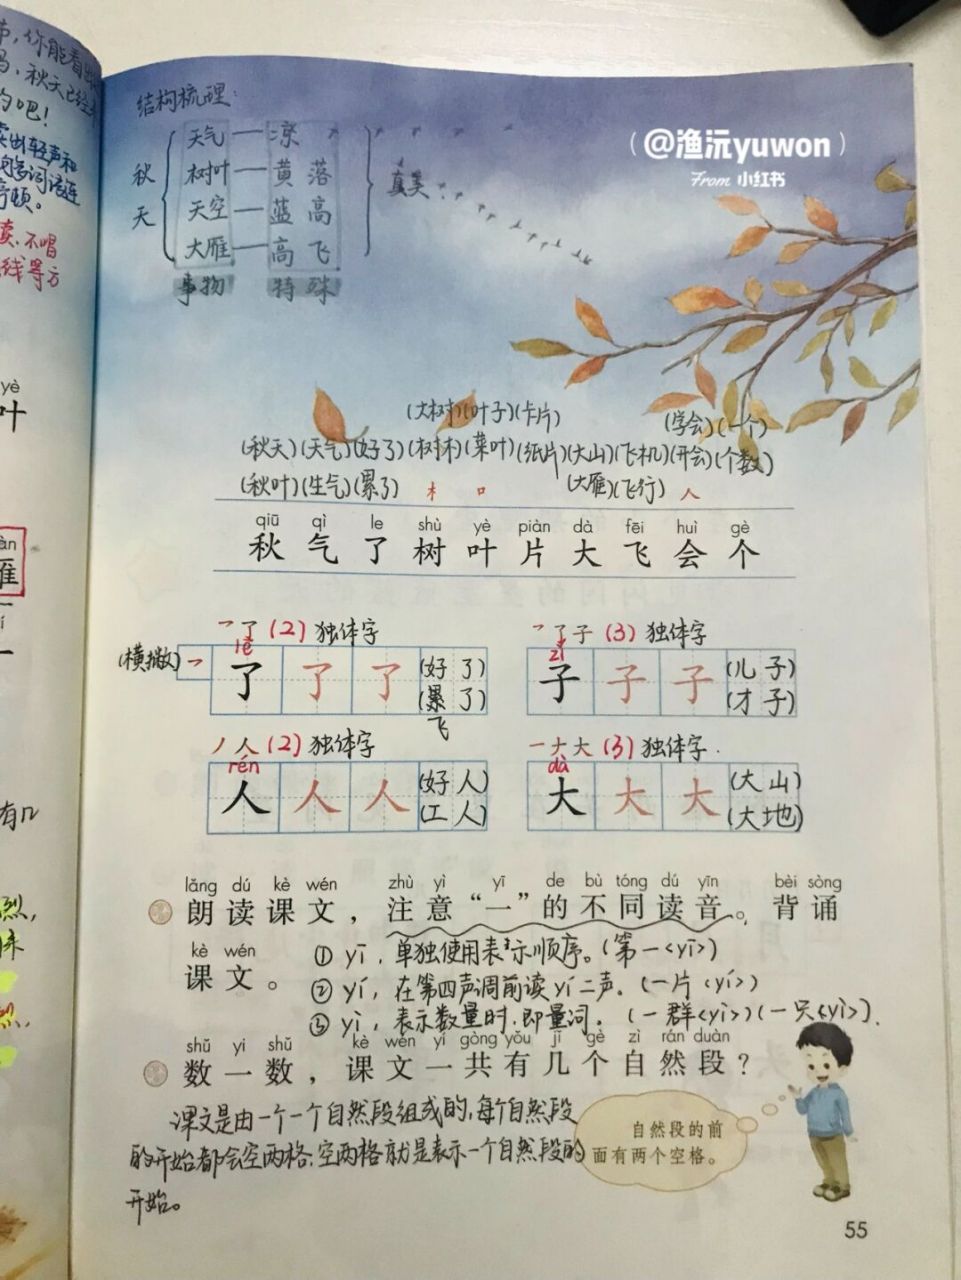 节,你能看出
吗,秋天已经
的吧!
读出轻声和
词语连
顿。
读、不唱
线等方
yè
叶
àn
雁
有几
烈,
结构梳理:
秋天
天气 — 凉
树叶 — 黄 落
天空 — 蓝 高
大雁 — 高 飞
事物 特殊
真美
(@渔沅yuwon)
From 小红书
(大树)(叶子)(卡片) (学会)(一个)
(秋天)(天气)(好了)(树木)(菜叶)(纸片)(大山)(飞机)(开会)(个数)
(秋叶)(生气)(累了) 木 口 (大雁)(飞行) 人
qiū qì le shù yè piàn dà fēi huì gè
秋 气 了 树 叶 片 大 飞 会 个
乛了(2) 独体字
le
(横撇) 乛 了 了 了 (好了)
(累了)
飞
乛了子(3) 独体字
zǐ
子 子 子 (儿子)
(才子)
丿人(2) 独体字
rén
人 人 人 (好人)
(工人)
一ナ大(3) 独体字.
dà
大 大 大 (大山)
(大地)
lǎng dú kè wén zhù yì yī de bù tóng dú yīn bèi sòng
朗读课文,注意“一”的不同读音。背诵
kè wén
课文。
① yī,单独使用表示顺序。(第一<yī>)
② yí,在第四声调前读yí二声。(一片<yí>)
③ yì,表示数量时,即量词。(一群<yì>)(一只<yì>).
shǔ yi shǔ kè wén yí gòng yǒu jǐ gè zì rán duàn
数一数,课文一共有几个自然段?
课文是由一个一个自然段组成的,每个自然段
的开始都会空两格;空两格就是表示一个自然段的
开始。
自然段的前
面有两个空格。
55